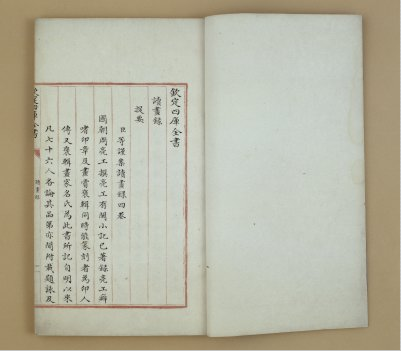 欽定四庫全書
讀畫錄
提要
臣等謹案讀畫錄四卷
國朝周亮工撰亮工有閩小記已著錄亮工癖
嗜印章及畫嘗裒輯同時能篆刻者為印人
傳又裒輯畫家名氏為此書所記自明以來
凡七十六人各論其品第亦間附載題詠及
欽定四庫全書
讀畫錄
一